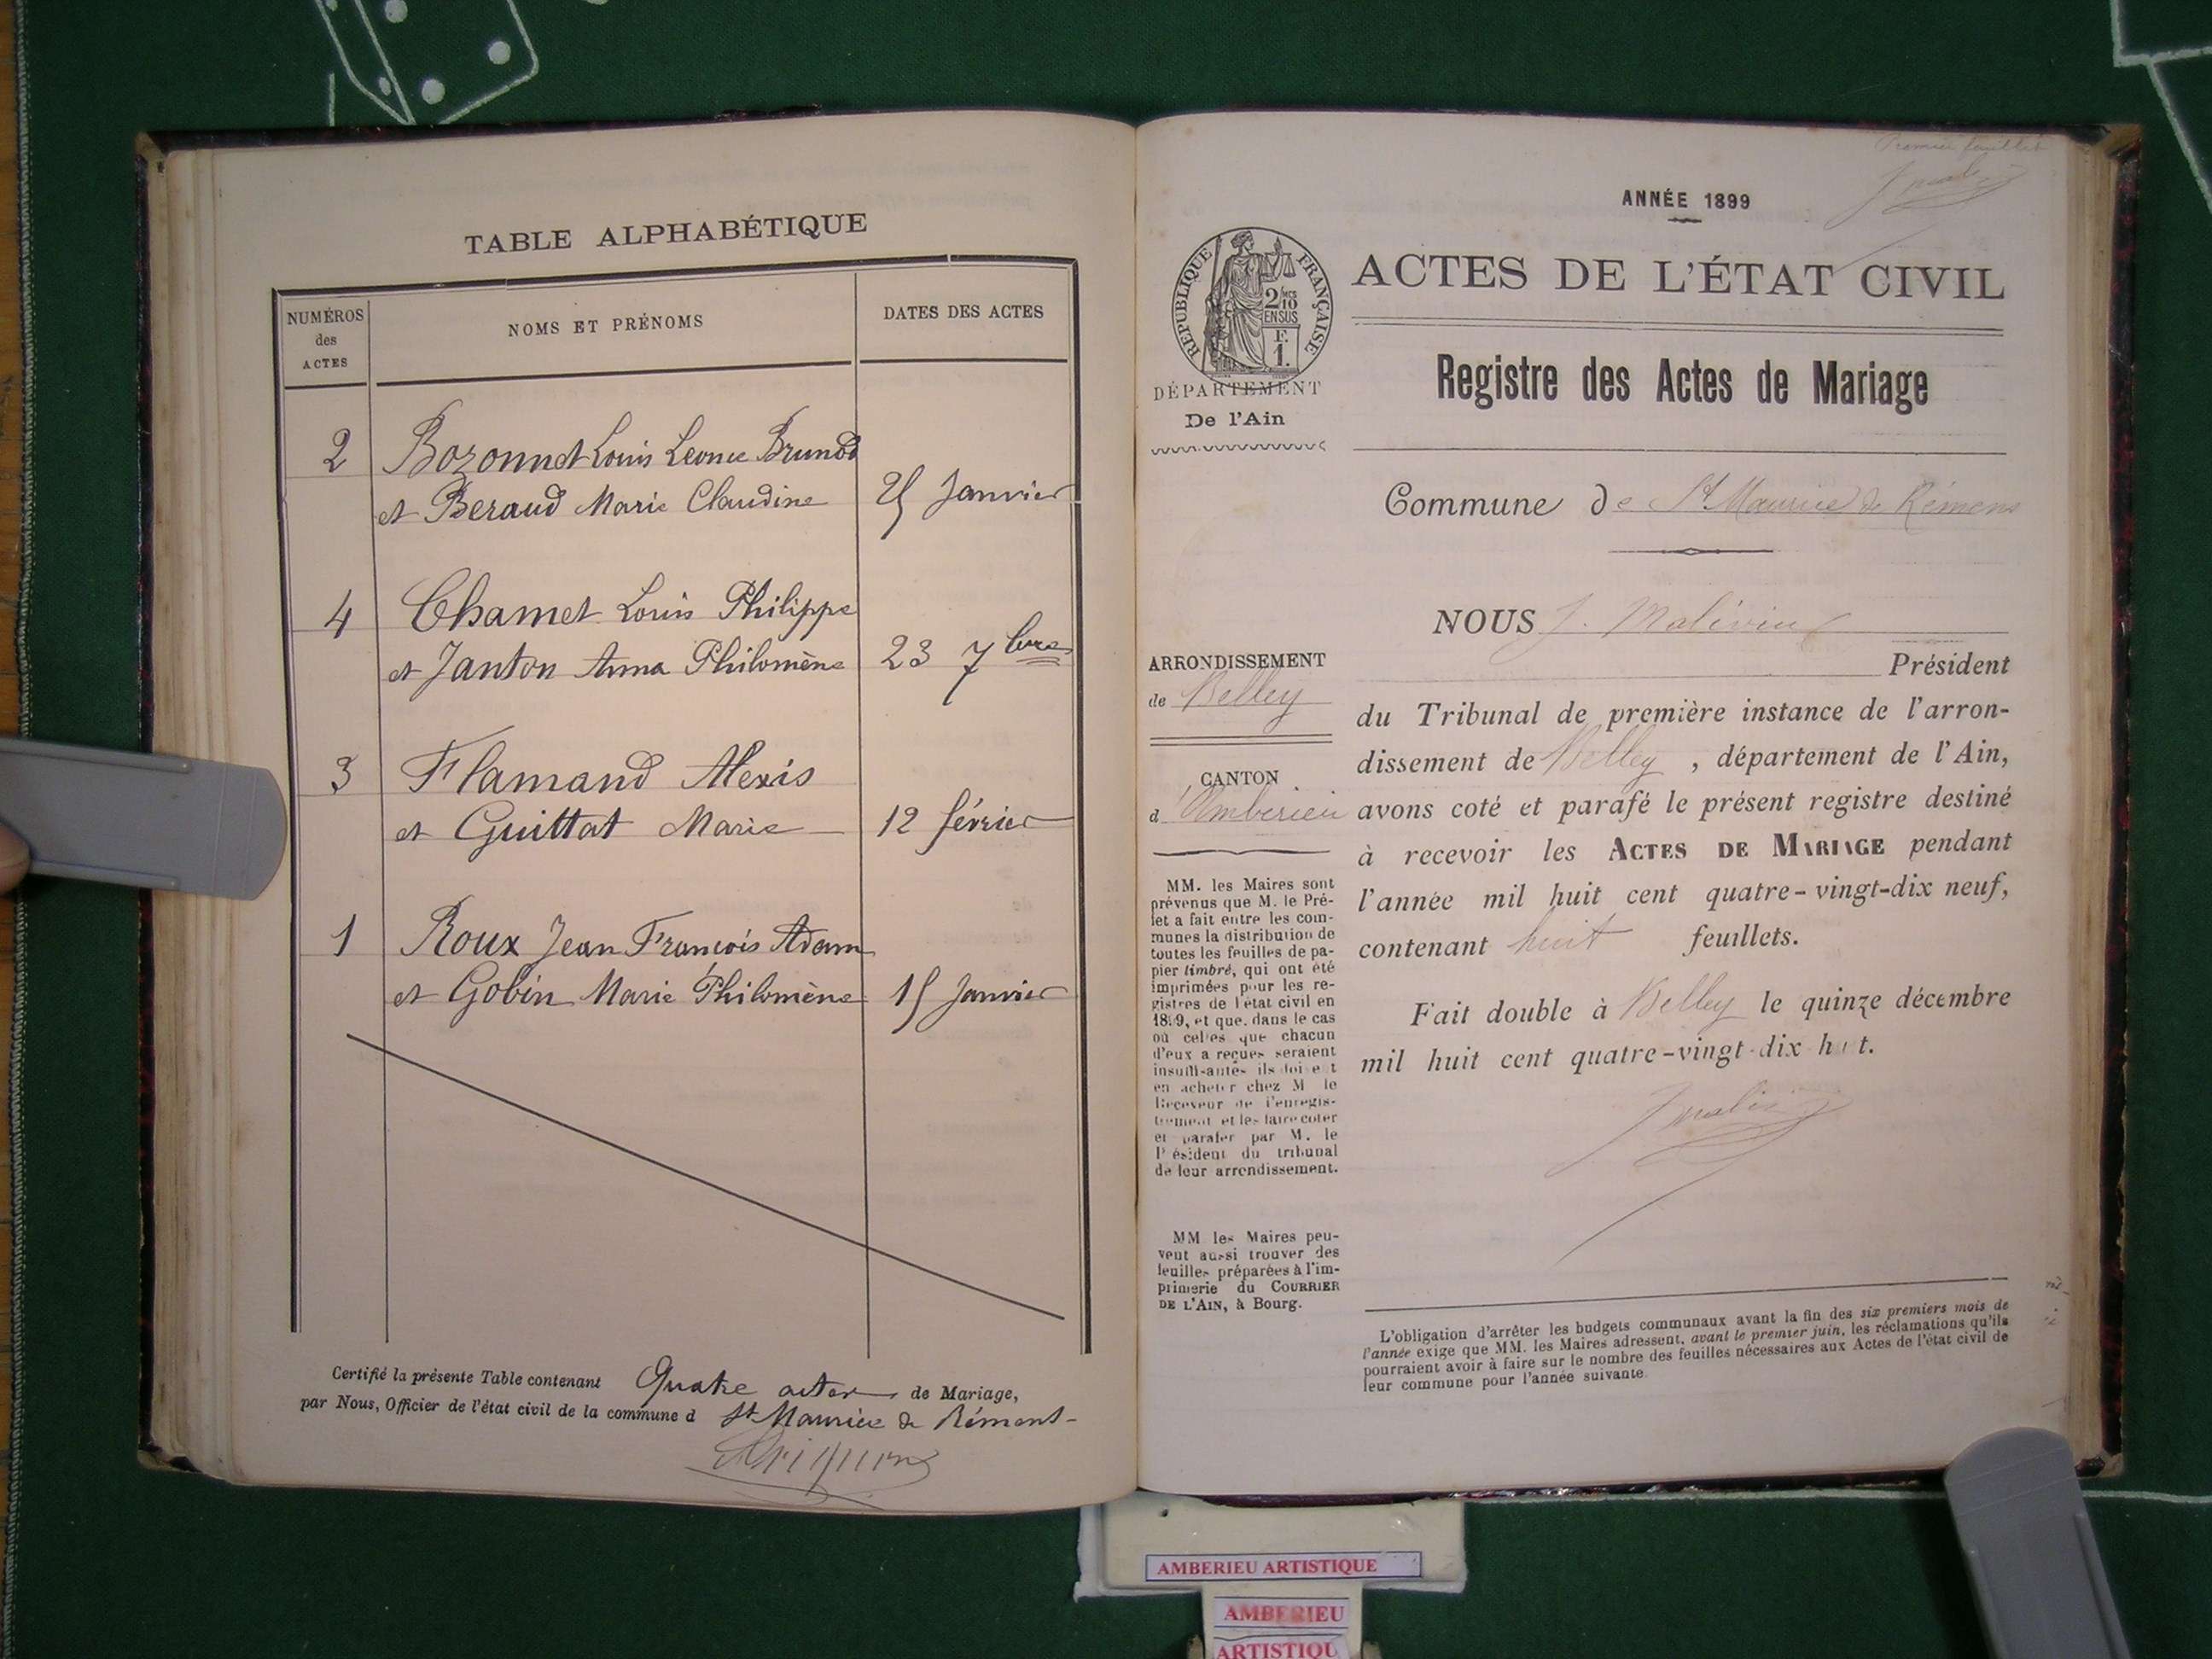 TABLE ALPHABÉTIQUE
NUMÉROS des ACTES
NOMS ET PRÉNOMS
DATES DES ACTES
2 Bozonnet Louis Leonce Brunod
et Beraud Marie Claudine 25 Janvier
4 Chamet Louis Philippe
et Janton Anna Philomène 23 7bre
3 Flamand Alexis
et Guittat Marie 12 février
1 Roux Jean François Adam
et Gobin Marie Philomène 15 Janvier
Certifié la présente Table contenant Quatre actes de Mariage,
par Nous, Officier de l'état civil de la commune d St Maurice de Rémens
Premier feuillet
ANNÉE 1899
RÉPUBLIQUE FRANÇAISE
2/10
EN SUS
F.
1.
ACTES DE L'ÉTAT CIVIL
DÉPARTEMENT
De l'Ain
Registre des Actes de Mariage
Commune de St Maurice de Rémens
ARRONDISSEMENT
de Belley
CANTON
d'Amberieu
MM. les Maires sont
prévenus que M. le Pré-
fet a fait entre les com-
munes la distribution de
toutes les feuilles de pa-
pier timbré, qui ont été
imprimées pour les re-
gistres de l'état civil en
1899, et que, dans le cas
où celles que chacun
d'eux a reçues seraient
insuffisantes ils doivent
en acheter chez M le
Receveur de l'enregis-
trement et les faire coter
et parafer par M. le
Président du tribunal
de leur arrondissement.
MM les Maires peu-
vent aussi trouver des
feuilles préparées à l'im-
primerie du COURRIER
DE L'AIN, à Bourg.
NOUS J.
Président
du Tribunal de première instance de l'arron-
dissement de Belley, département de l'Ain,
avons coté et parafé le présent registre destiné
à recevoir les ACTES DE MARIAGE pendant
l'année mil huit cent quatre-vingt-dix neuf,
contenant huit feuillets.
Fait double à Belley le quinze décembre
mil huit cent quatre-vingt-dix huit.
L'obligation d'arrêter les budgets communaux avant la fin des six premiers mois de
l'année exige que MM. les Maires adressent, avant le premier juin, les réclamations qu'ils
pourraient avoir à faire sur le nombre des feuilles nécessaires aux Actes de l'état civil de
leur commune pour l'année suivante.
AMBERIEU ARTISTIQUE
AMBERIEU
ARTISTIQU